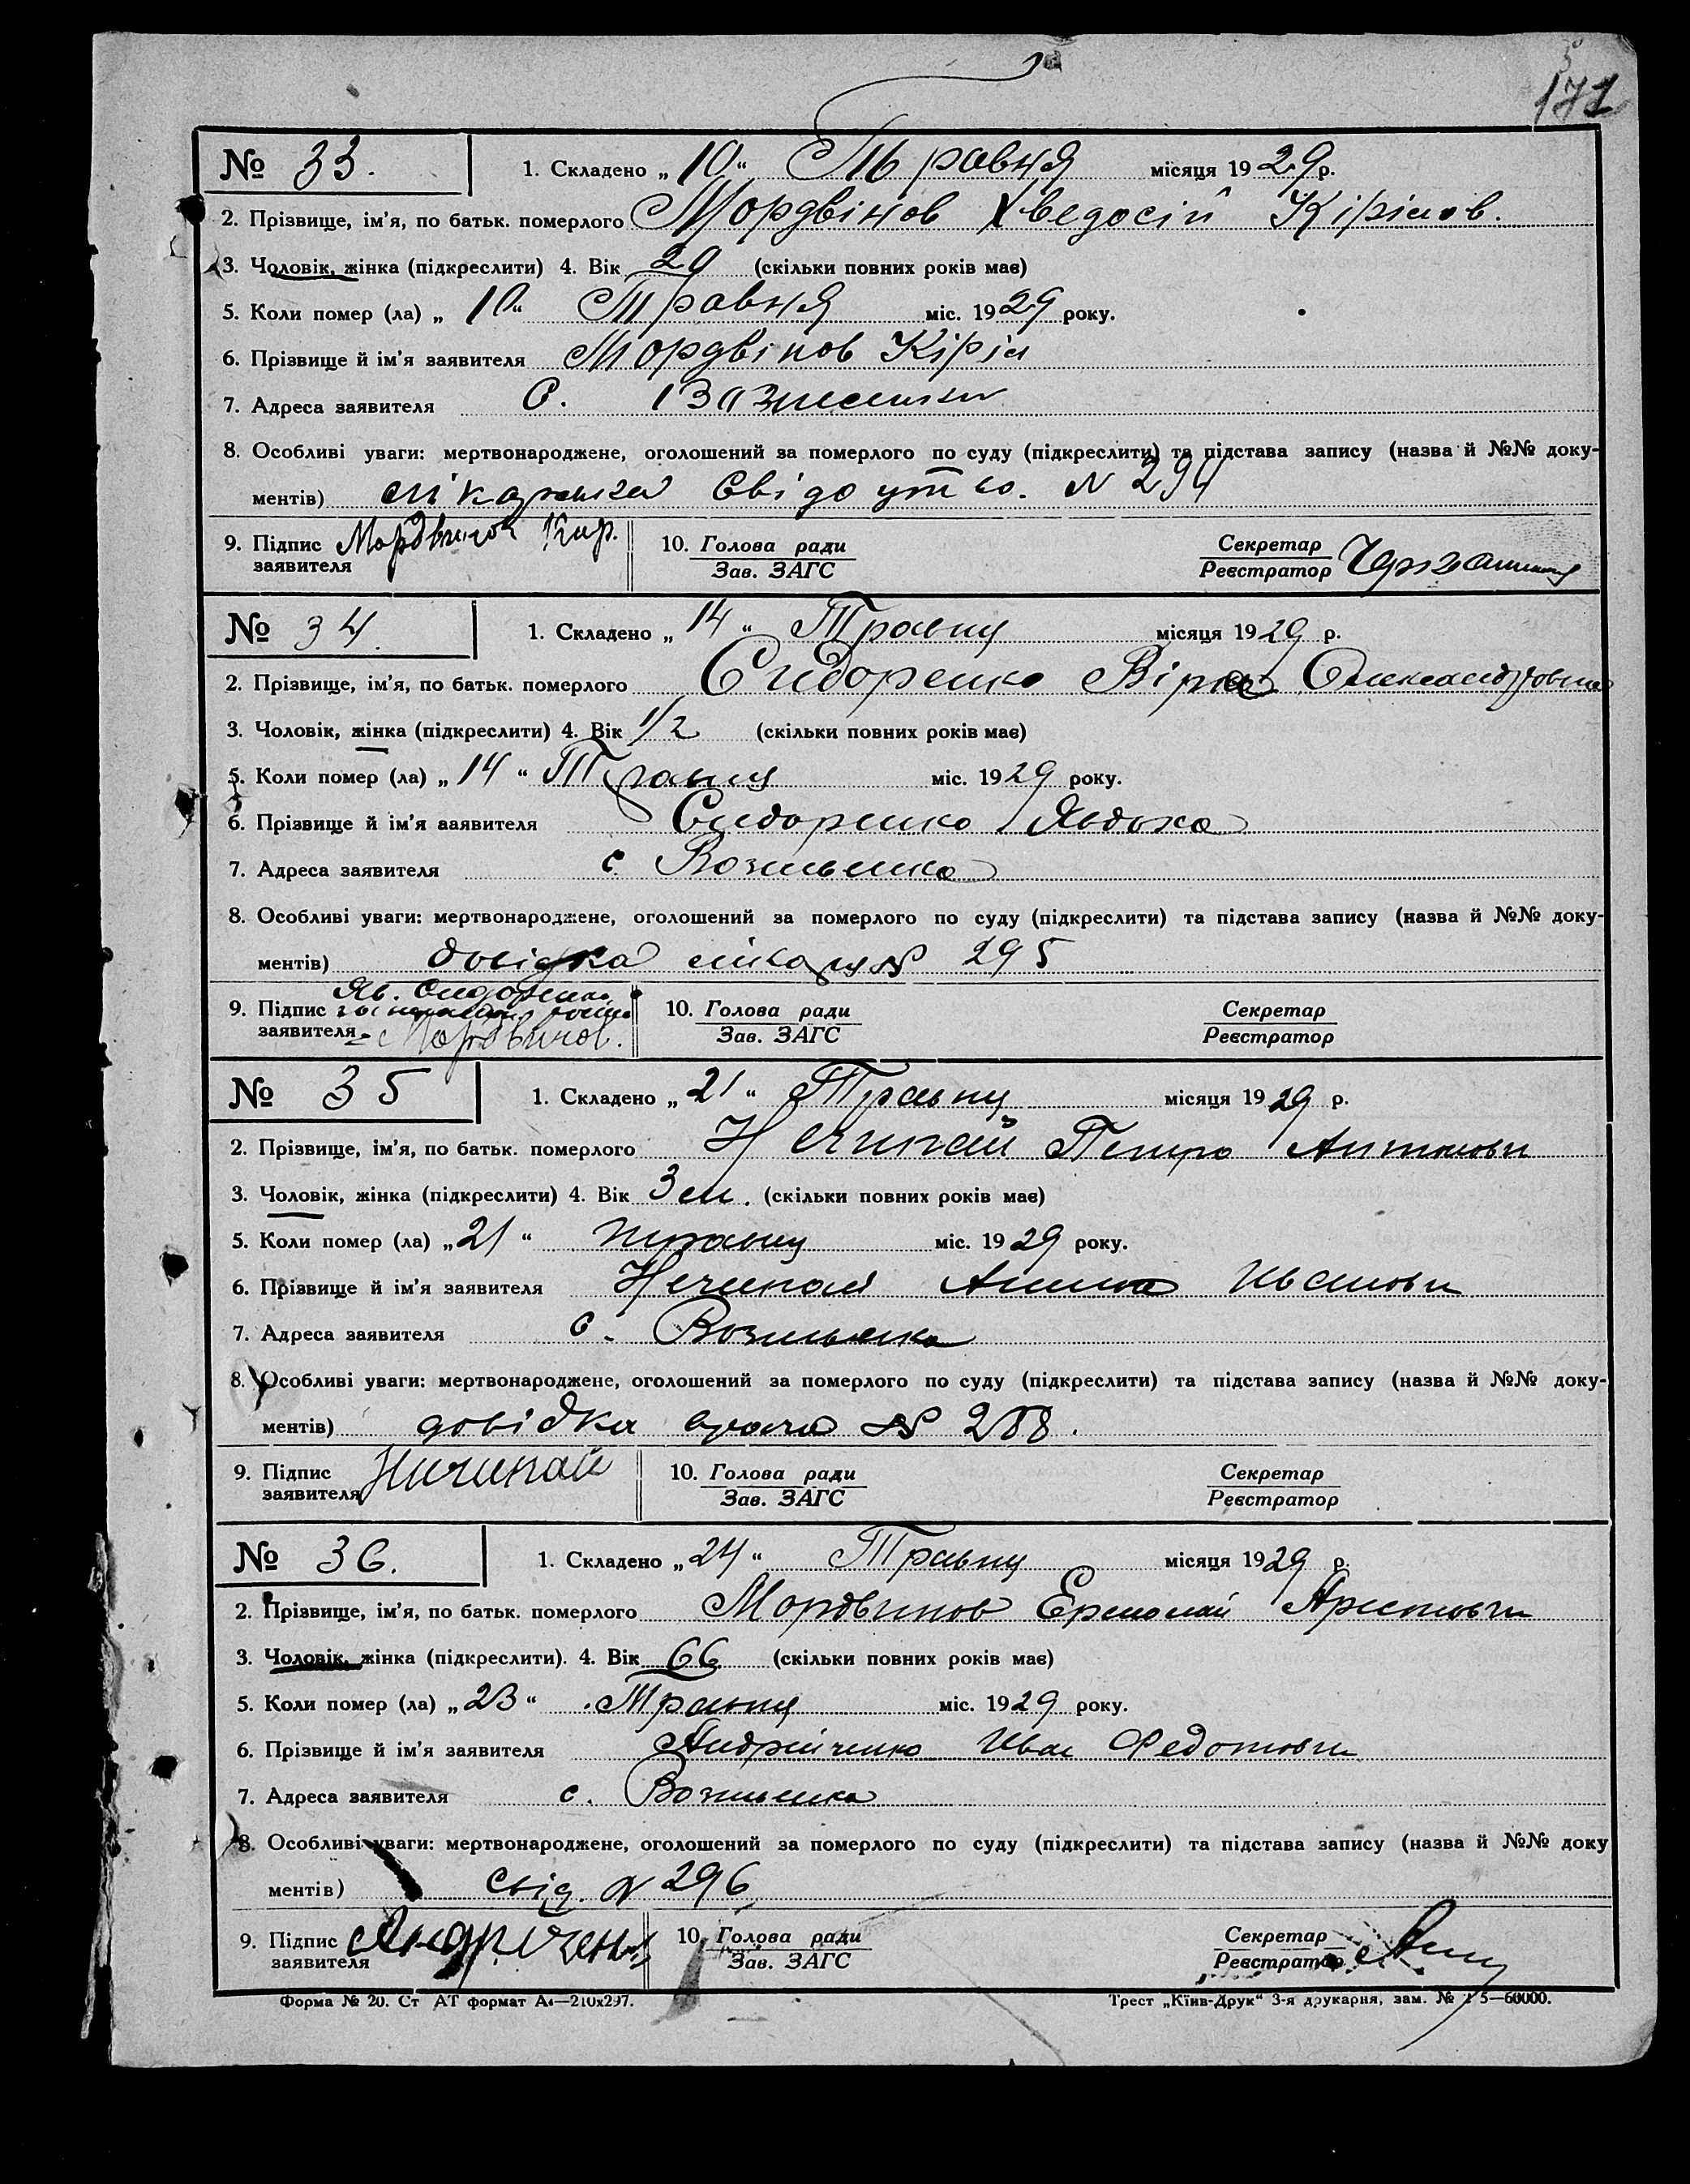 171
№ 33. 1. Складено „10“ Травня місяця 1929р.
2. Прізвище, ім’я, по батьк. померлого Мордвінов Хведосій Кіріlов.
3. Чоловік, жінка (підкреслити) 4. Вік 29 (скільки повних років має)
5. Коли помер (ла) „10“ Травня міс. 1929 року.
6. Прізвище й ім’я заявителя Мордвінов Кіріл
7. Адреса заявителя С.
8. Особливі уваги: мертвонароджене, оголошений за померлого по суду (підкреслити) та підстава запису (назва й №№ доку-
ментів) лікарська N 294
9. Підпис заявителя Мордвинов Кир. 10. Голова ради Секретар
Зав. ЗАГС Реєстратор
№ 34. 1. Складено „14“ Травня місяця 1929 р.
2. Прізвище, ім’я, по батьк. померлого Сидоренко Віра Олександровна
3. Чоловік, жінка (підкреслити) 4. Вік 1/2 (скільки повних років має)
5. Коли помер (ла) „14“ Травня міс. 1929 року.
6. Прізвище й ім’я заявителя Сидоренко Явдоха
7. Адреса заявителя с. Вознысенка
8. Особливі уваги: мертвонароджене, оголошений за померлого по суду (підкреслити) та підстава запису (назва й №№ доку-
ментів) довідка лікаря № 295
9. Підпис заявителя Яв. Сидоренко 10. Голова ради Секретар
Мордвинов. Зав. ЗАГС Реєстратор
№ 35 1. Складено „21“ Травня місяця 1929 р.
2. Прізвище, ім’я, по батьк. померлого Нечипай Петро Антонович
3. Чоловік, жінка (підкреслити) 4. Вік 3 м. (скільки повних років має)
5. Коли помер (ла) „21“ травня міс. 1929 року.
6. Прізвище й ім’я заявителя Нечипай Иванович
7. Адреса заявителя с. Вознысенка
8. Особливі уваги: мертвонароджене, оголошений за померлого по суду (підкреслити) та підстава запису (назва й №№ доку-
ментів) довідка врача № 288.
9. Підпис заявителя Ничипай 10. Голова ради Секретар
Зав. ЗАГС Реєстратор
№ 36. 1. Складено „24“ Травня місяця 1929 р.
2. Прізвище, ім’я, по батьк. померлого Мордвинов Ермолай
3. Чоловік, жінка (підкреслити). 4. Вік 66 (скільки повних років має)
5. Коли помер (ла) „23“ Травня міс. 1929 року.
6. Прізвище й ім’я заявителя Андрійченко Иван Федотович
7. Адреса заявителя с. Вознысенка
8. Особливі уваги: мертвонароджене, оголошений за померлого по суду (підкреслити) та підстава запису (назва й №№ доку
ментів) свід. N 296
9. Підпис заявителя 10. Голова ради Секретар
Зав. ЗАГС Реєстратор
Форма № 20. Ст АТ формат А4—210х297. Трест „Київ-Друк“ 3-я друкарня, зам. № 5—60000.